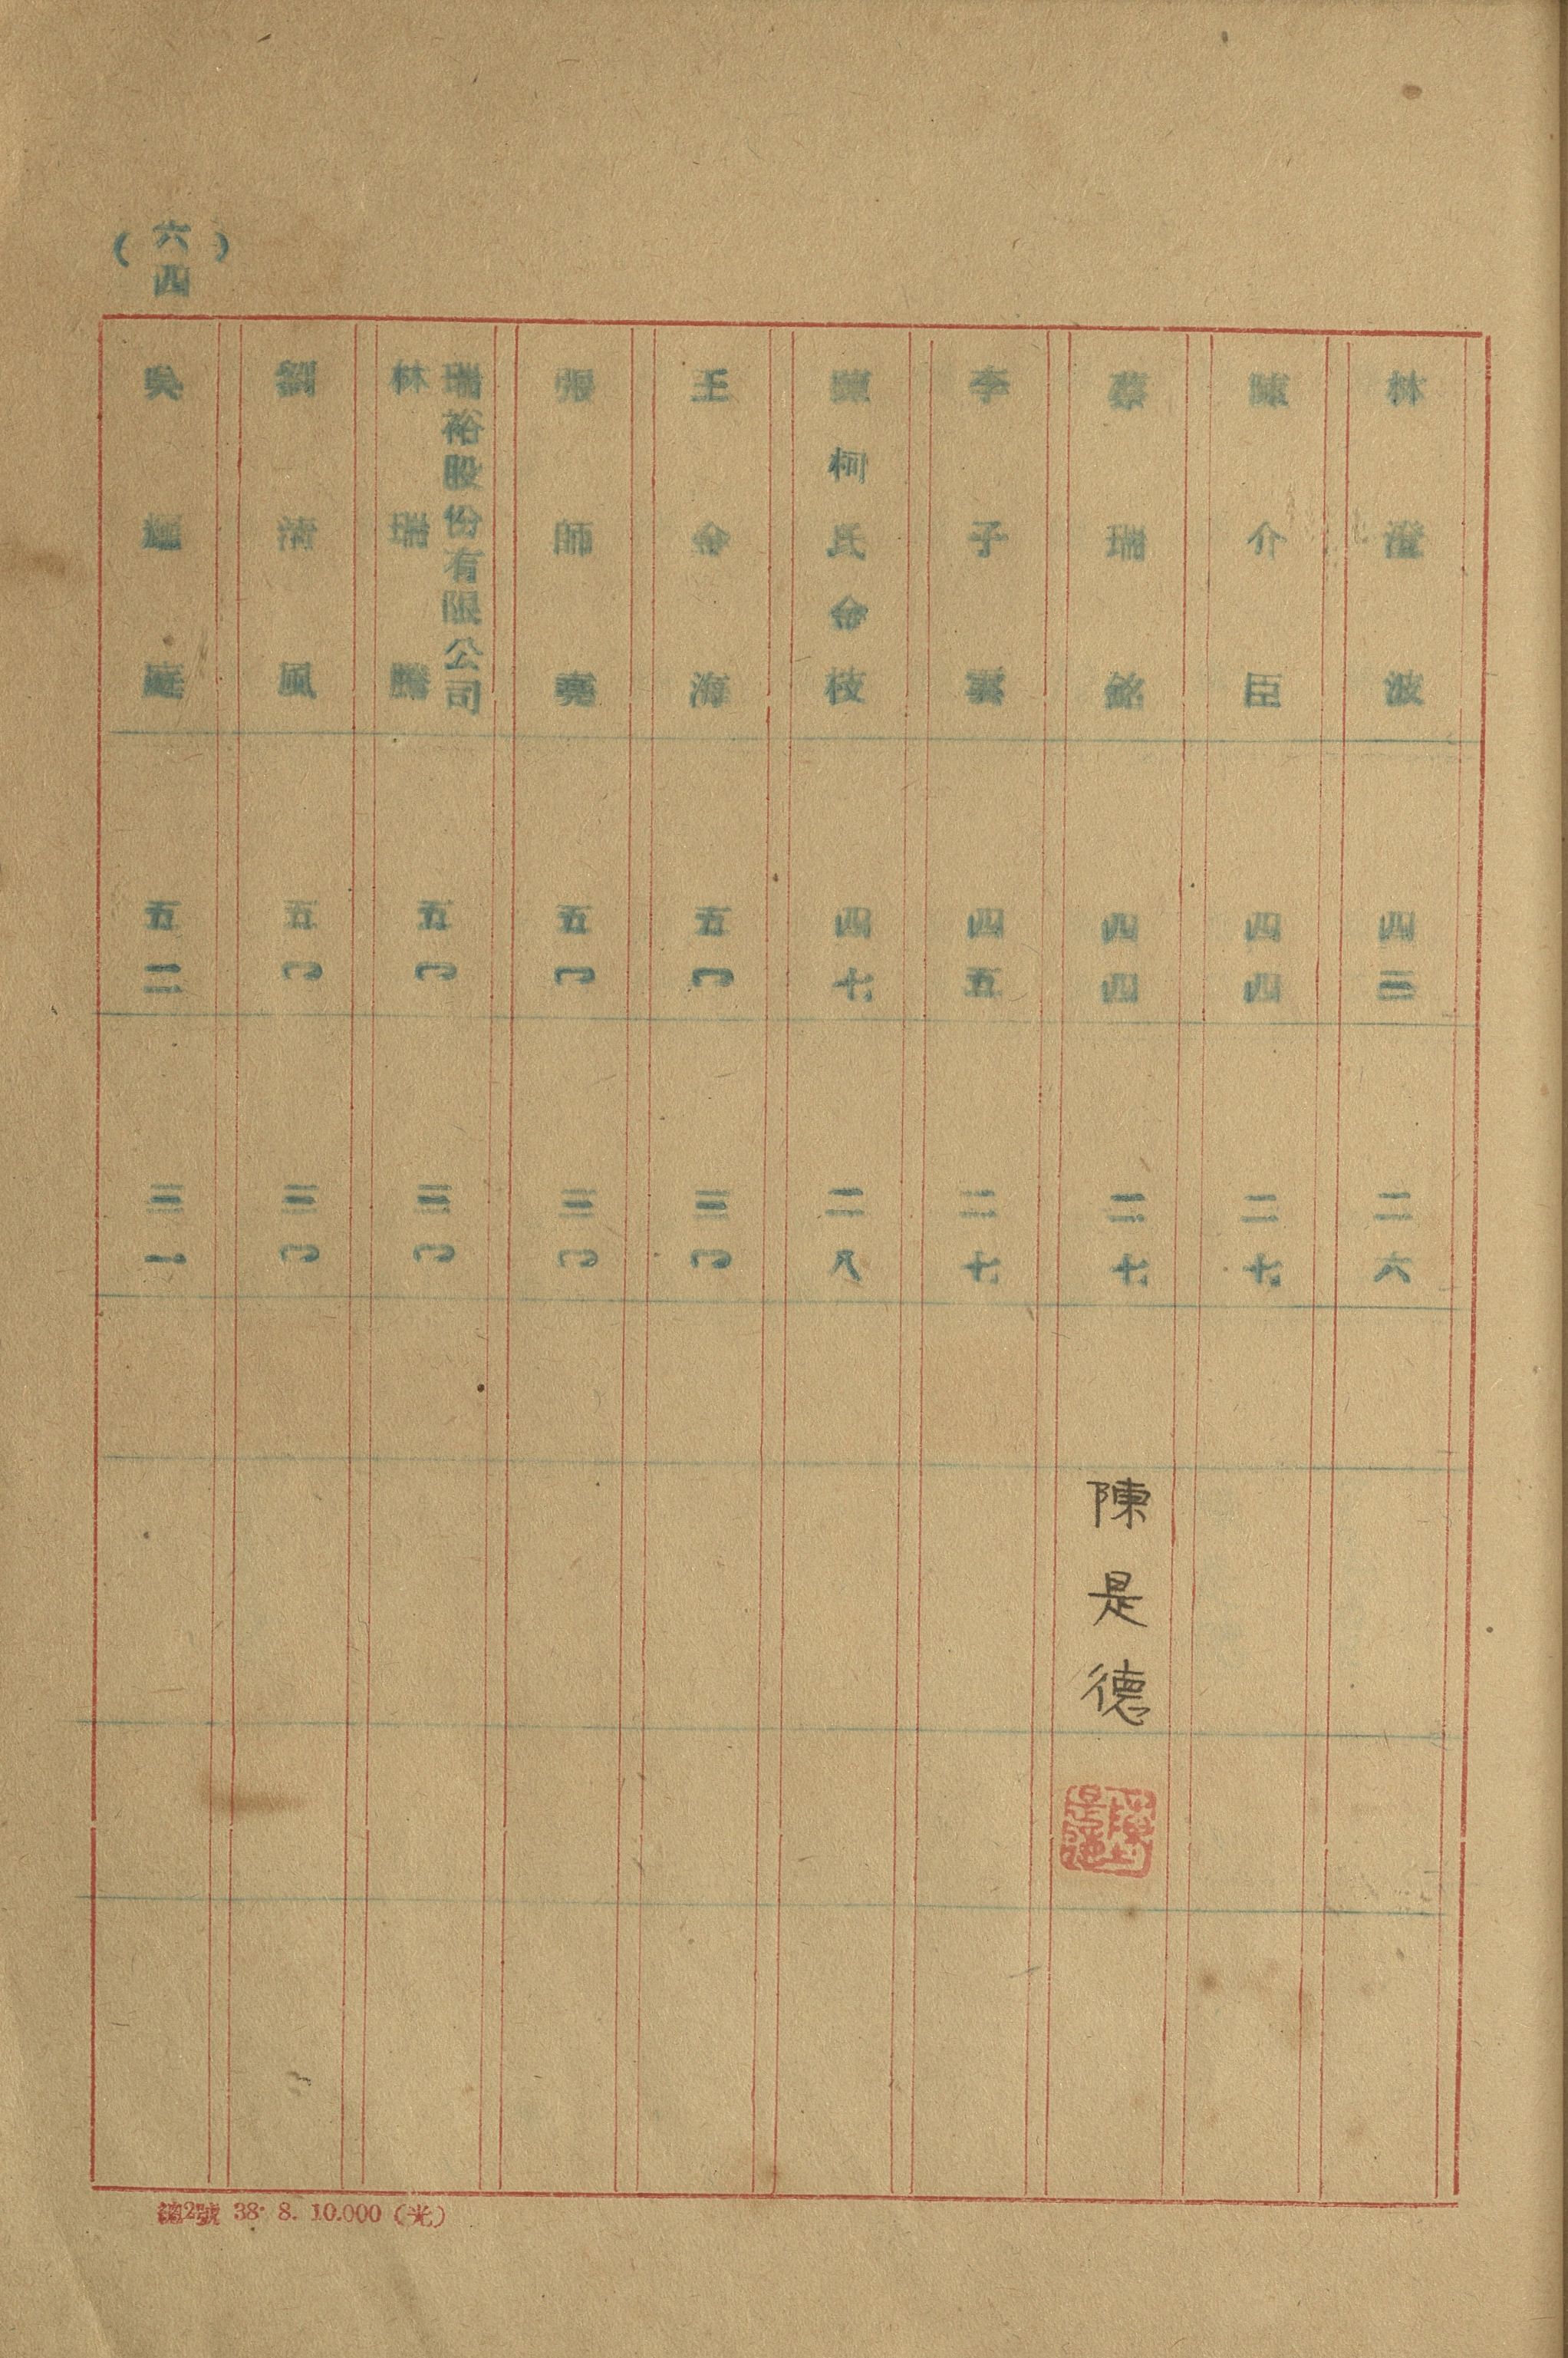 (六四)
林澄波 四三 二六
陳介臣 四四 二七
蔡瑞銘 四四 二七 陳是德
李子雲 四五 二七
陳柯氏金枝 四七 二八
王金海 五〇 三〇
張師堯 五〇 三〇
瑞裕股份有限公司
林瑞騰 五〇 三〇
劉清風 五〇 三〇
吳 五二 三一
總2號 38. 8. 10.000 (光)